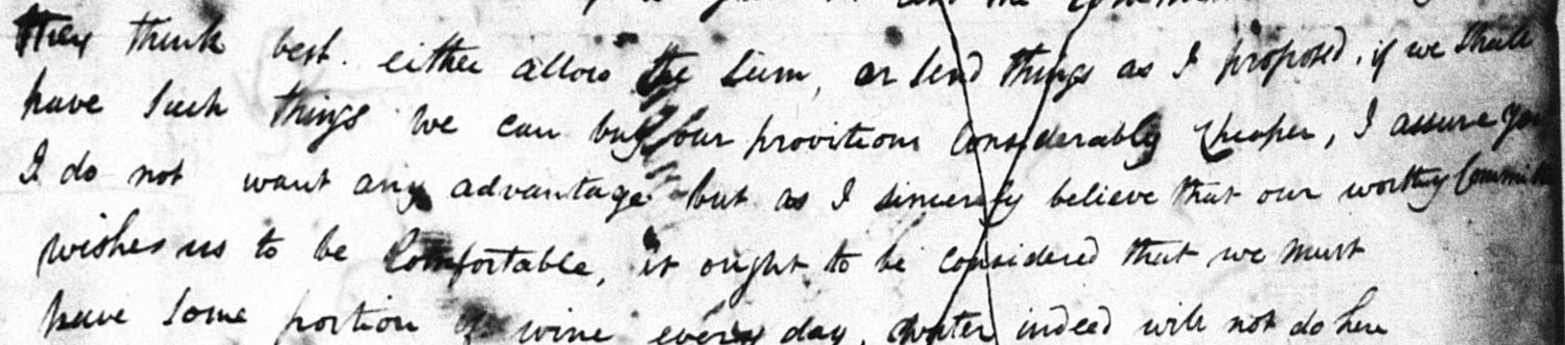 they think best. either allow the sum, or send things as I proposed, if we shall
have such things we can buy our provitions Considerably Cheaper, I assure you
I do not want any advantage but as I sincerely believe that our worthy Committee
wishes us to be Comfortable, it ought to be considered that we must
have some portion of wine every day, water indeed will not do here